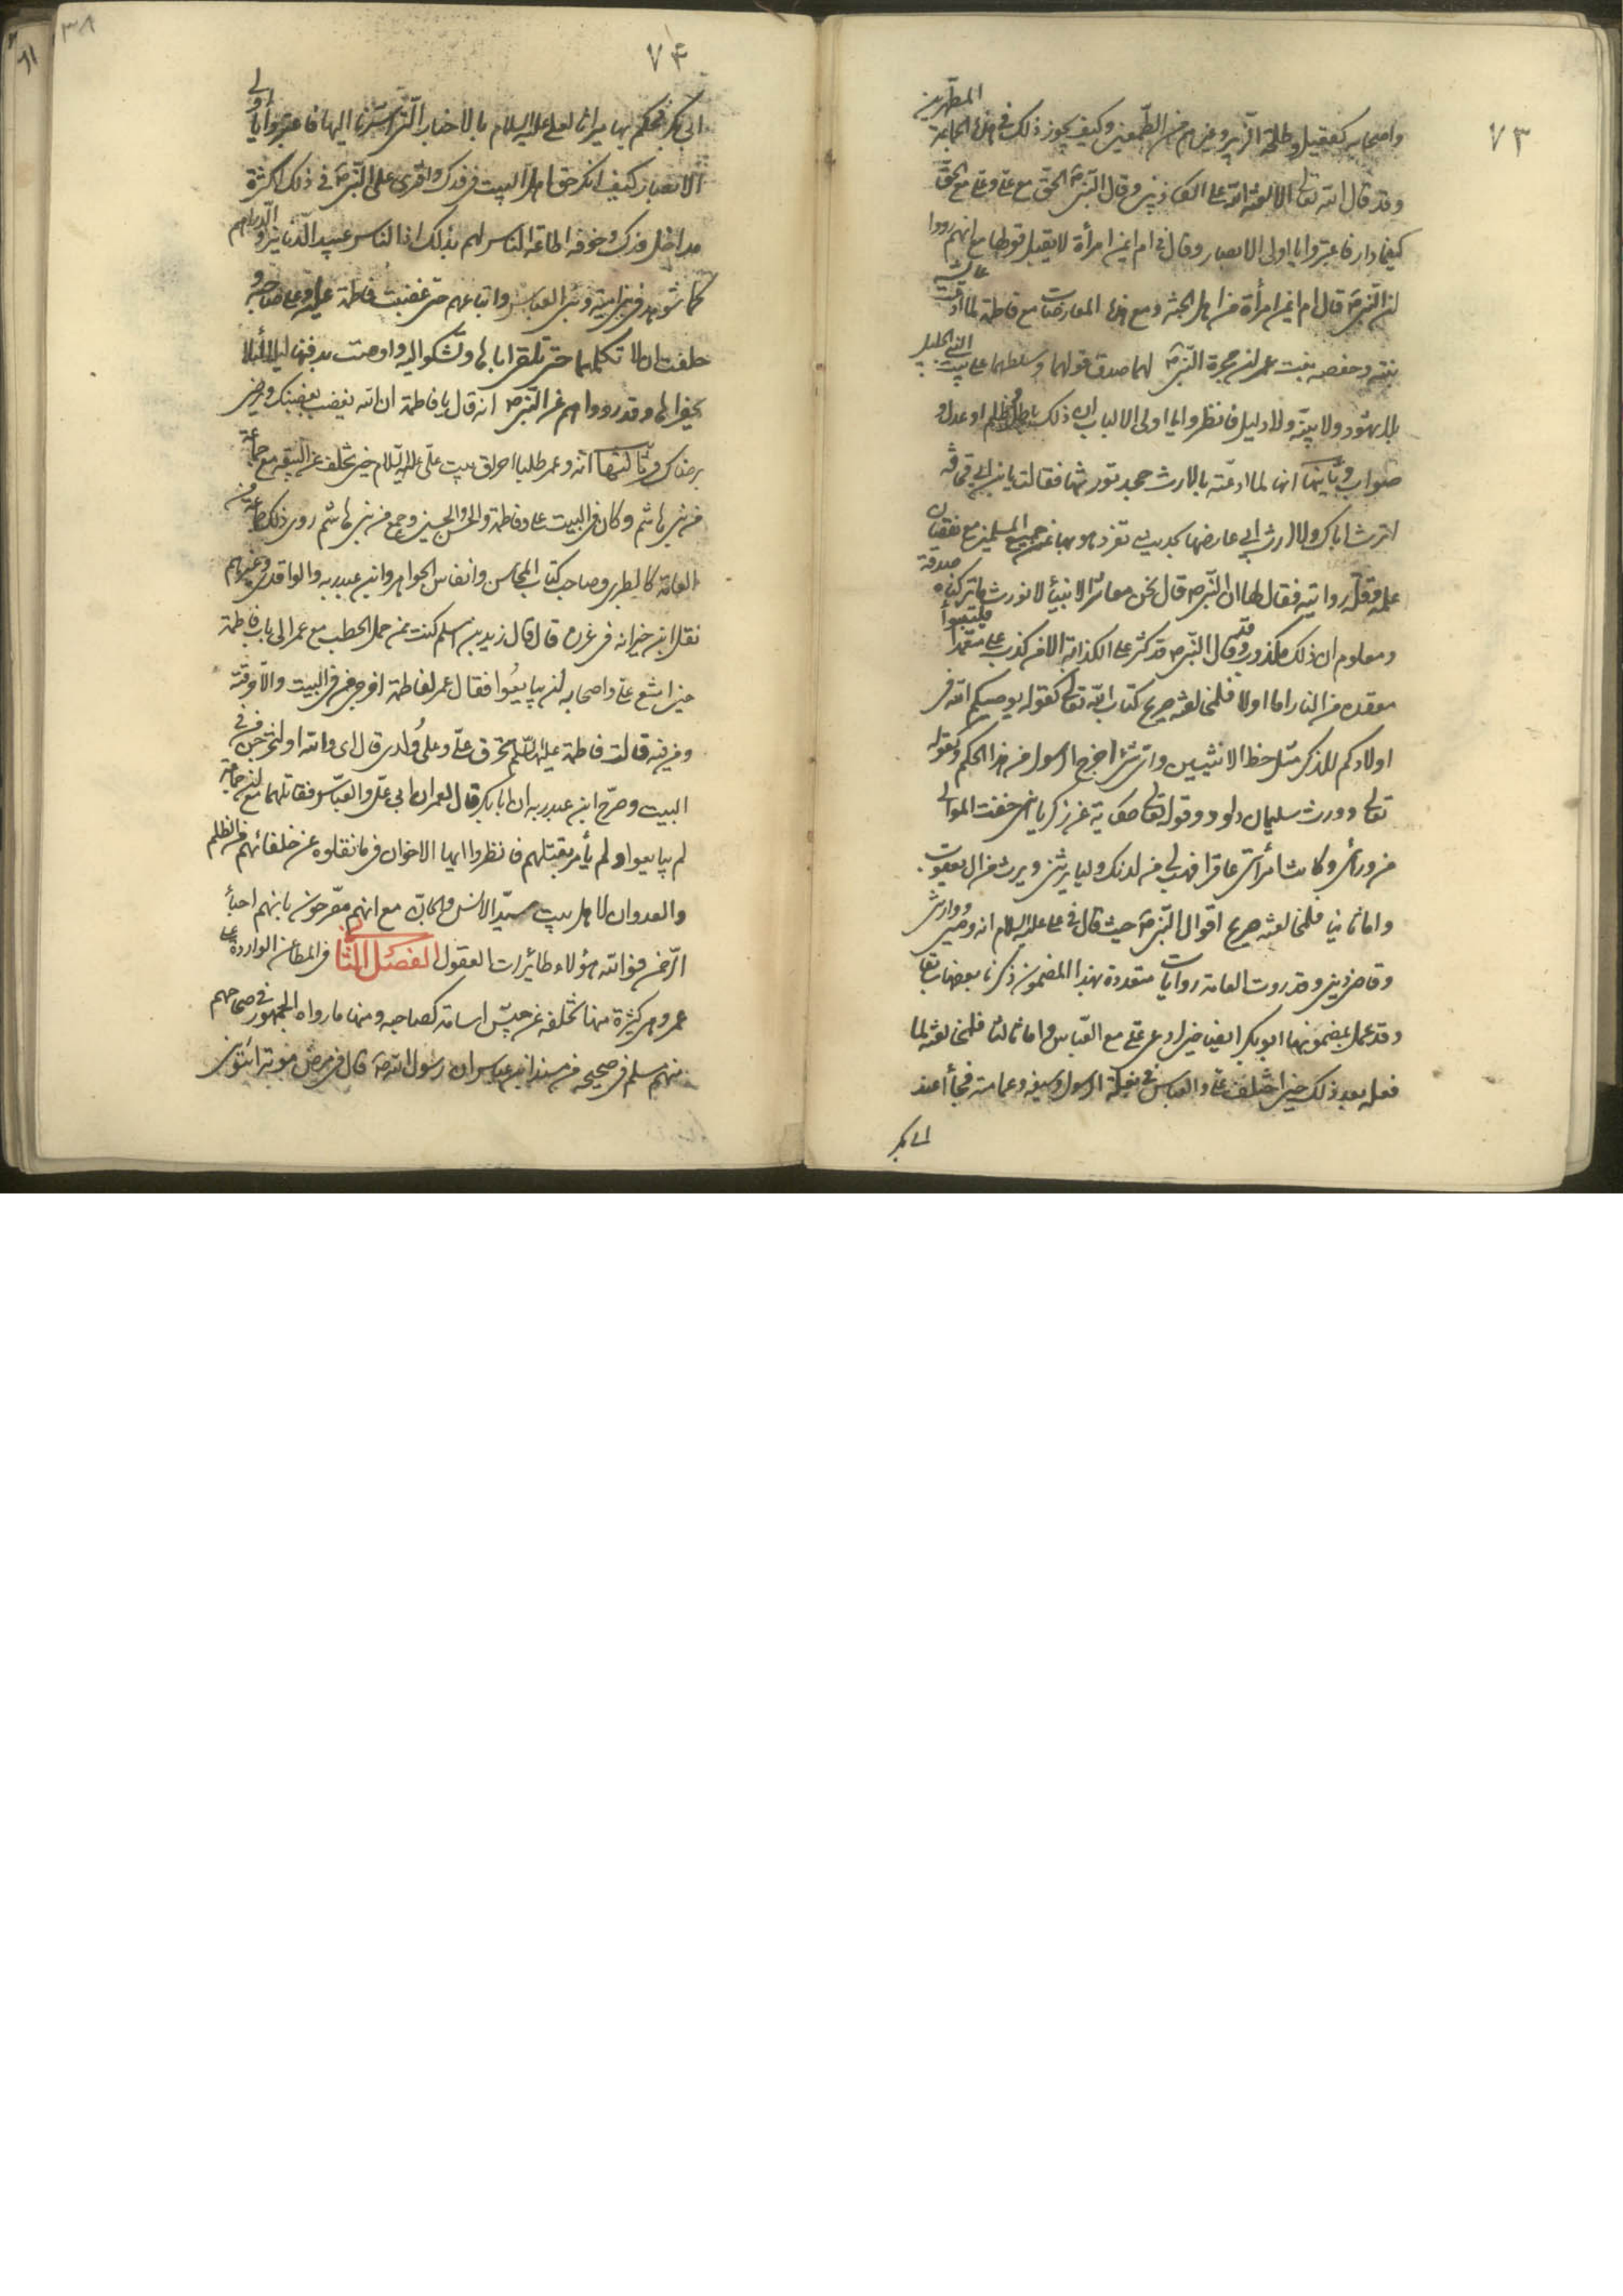 ٧٣
المطهرين
واصحابه كعقيل وطلحة والزبير وغيرهم من الطمعين وكيف يجوز ذلك في هذه الجماعة
وقد قال الله تعالى الا لعنة الله على الكاذبين وقال النبي ص الحق مع علي وعلي مع الحق
كيفما دار فاعتبروا يا اولي الابصار وقال في ام ايمن امرأة لا يقبل قولها مع انهم رووا
ان النبي ص قال ام ايمن امرأة من اهل الجنة ومع هذه المعارضات مع فاطمة لما ادعت عائشة
بنته وحفصه بنت عمر ان حجرة النبي ص لهما صدق قولهما وسلطهما على بيت النبي الجليل
بلا شهود ولا بينة ولا دليل فانظروا يا اولي الالباب ان ذلك باطل وظلم او عدل و
صواب وثانيها انها لما ادعته بالارث جحد توريثها فقالت يا ابن ابي قحافه
اترث اباك ولا ارث ابي عارضها بحديث تفرد هو بها عن جميع المسلمين مع نقصان
علمه وقلة روايته فقال لها ان النبي ص قال نحن معاشر الانبياء لا نورث ما تركناه صدقة
ومعلوم ان ذلك مكذور وقد قال النبي ص قد كثر علي الكذابة الا فمن كذب علي متعمدا فليتبوأ
مقعده من النار اما اولا فلمخالفته صريح كتاب الله تعالى كقوله يوصيكم الله في
اولادكم للذكر مثل حظ الانثيين واي شئ اخرج الرسول من هذا الحكم وكقوله
تعالى وورث سليمان داود وقوله تعالى حكاية عن زكريا اني خفت الموالي
من ورائي وكانت امرأتي عاقرا فهب لي من لدنك وليا يرثني ويرث من ال يعقوب
واما ثانيا فلمخالفته صريح اقوال النبي ص حيث قال في علي عليه السلام انه وصيي ووارثي
وقاضي ديني وقد روت العامة روايات متعددة بهذا المضمون ذكرنا بعضها سابقا
وقد عمل بمضمونها ابو بكر ايضا حين ادعى علي مع العباس واما ثالثا فلمخالفته لما
فعله بعد ذلك حين اختلف علي والعباس في بغلة الرسول وسيفه وعمامته فجاءا عند
ابي بكر
٧٤
٣٨
ابي بكر فحكم بها ميراثا لعلي عليه السلام بالاخبار التي اشرنا اليها فاعتبروا يا اولي
الابصار كيف انكر حق اهل البيت في فدك وافترى على النبي ص في ذلك لكثرة
مداخل فدك وخوفه اطاعة الناس لهم بذلك اذ الناس عبيد الدنانير والدراهم
كما شوهد في بني امية وبني العباس واتباعهم حتى غضبت فاطمة عليه وعلى صاحبه و
حلفت ان لا تكلمهما حتى تلقى اباها وتشكو اليه واوصت بدفنها ليلا لئلا
يحضراها وقد رووا هم عن النبي ص انه قال يا فاطمة ان الله يغضب لغضبك ويرضى
برضاك وثالثها انه وعمر طلبا احراق بيت علي عليه السلام حين تخلف عن البيعة مع جماعة
من بني هاشم وكان في البيت علي وفاطمة والحسن والحسين وجمع من بني هاشم روى ذلك جماعة من
العامة كالطبري وصاحب كتاب المحاسن وانفاس الجواهر وابن عبد ربه والواقدي وغيرهم
نقل ابن خيرانه في غرره قال قال زيد بن اسلم كنت ممن حمل الحطب مع عمر الى باب فاطمة
حين امتنع علي واصحابه ان يبايعوا فقال عمر لفاطمة اخرجي من في البيت والا احرقته
ومن فيه قالت فاطمة عليها السلام تحرق علي وعلى ولدي قال اي والله او ليخرجن من في
البيت وصرح ابن عبد ربه ان ابا بكر قال لعمر ان ابى علي والعباس فقاتلهما مع ان جماعة
لم يبايعوا ولم يأمر بقتلهم فانظروا ايها الاخوان فيما نقلوه عن خلفائهم من الظلم
والعدوان لاهل بيت سيد الانس والجان مع انهم مصرحون بانهم احباء
الرحمن فوالله هؤلاء طائرات العقول الفصل الثاني في المطاعن الواردة على
عمر وهي كثيرة منها تخلفه عن جيش اسامة كصاحبه ومنها ما رواه الجمهور في صحاحهم
منهم مسلم في صحيحه من مسند ابن عباس ان رسول الله ص قال في مرض موته ائتوني